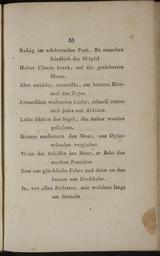 85
Ruhig im schützenden Port. Es rauschen
friedlich die Wipfel
Hoher Ulmen herab, auf die gesicherten
Masten.
Aber strahlet, entwölkt, am heitern Himmel des Tages
Freundlich wallendes Licht, schnell rüstet
sich jeder zur Abfahrt.
Lüfte blähen das Segel, die Anker werden
gelichtet,
Keiner entfernten den Mast, aus Opferschaalen vergießet
Wein der Schiffer ins Meer, er fleht den
starken Poseidon
Erst um glückliche Fahrt und dann um den
Heimen zur Rückkehr.
Ja, vor allen Pallästen, mit welchen längs
am Gestade